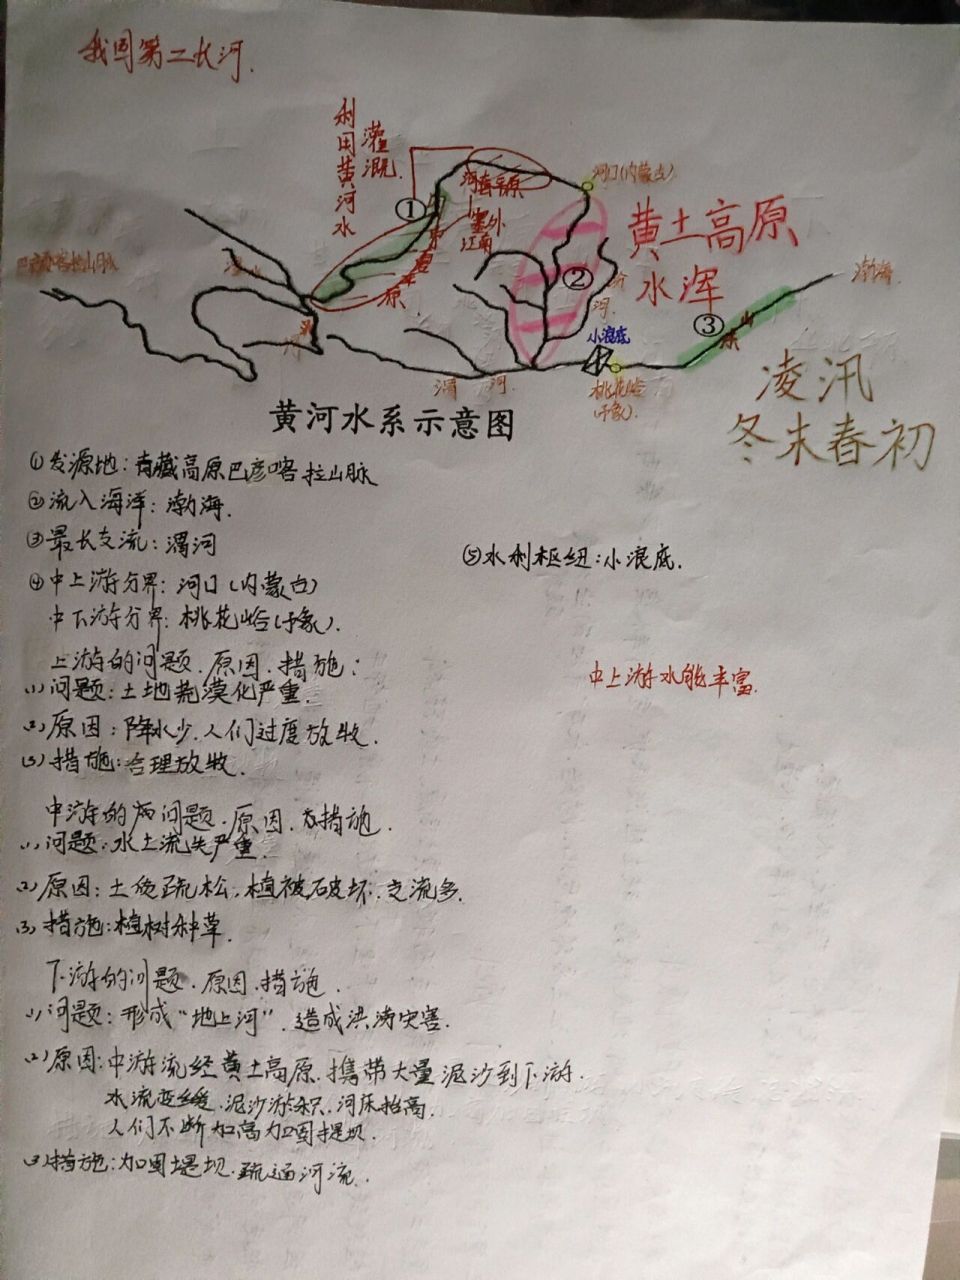 我国第二长河.
利用黄河水
灌溉
河套平原
塞外
江南
河口(内蒙古)
①
宁夏平原
黄土高原
水浑
②
汾河
③
山东
渤海
巴彦喀拉山脉
湟水
洮河
小浪底
渭河
桃花峪
(河南)
凌汛
冬末春初
黄河水系示意图
①发源地:青藏高原巴彦喀拉山脉
②流入海洋:渤海.
③最长支流:渭河
④中上游分界:河口(内蒙古)
中下游分界:桃花峪(河南).
⑤水利枢纽:小浪底.
上游的问题.原因.措施:
(1)问题:土地荒漠化严重.
(2)原因:降水少.人们过度放牧.
(3)措施:合理放牧.
中上游水能丰富.
中游的问题.原因.措施.
(1)问题:水土流失严重.
(2)原因:土质疏松,植被破坏.支流多.
(3)措施:植树种草.
下游的问题.原因.措施.
(1)问题:形成"地上河".造成洪涝灾害.
(2)原因:中游流经黄土高原.携带大量泥沙到下游.
水流变缓.泥沙淤积.河床抬高.
人们不断加高加固堤坝.
(3)措施:加固堤坝.疏通河流.